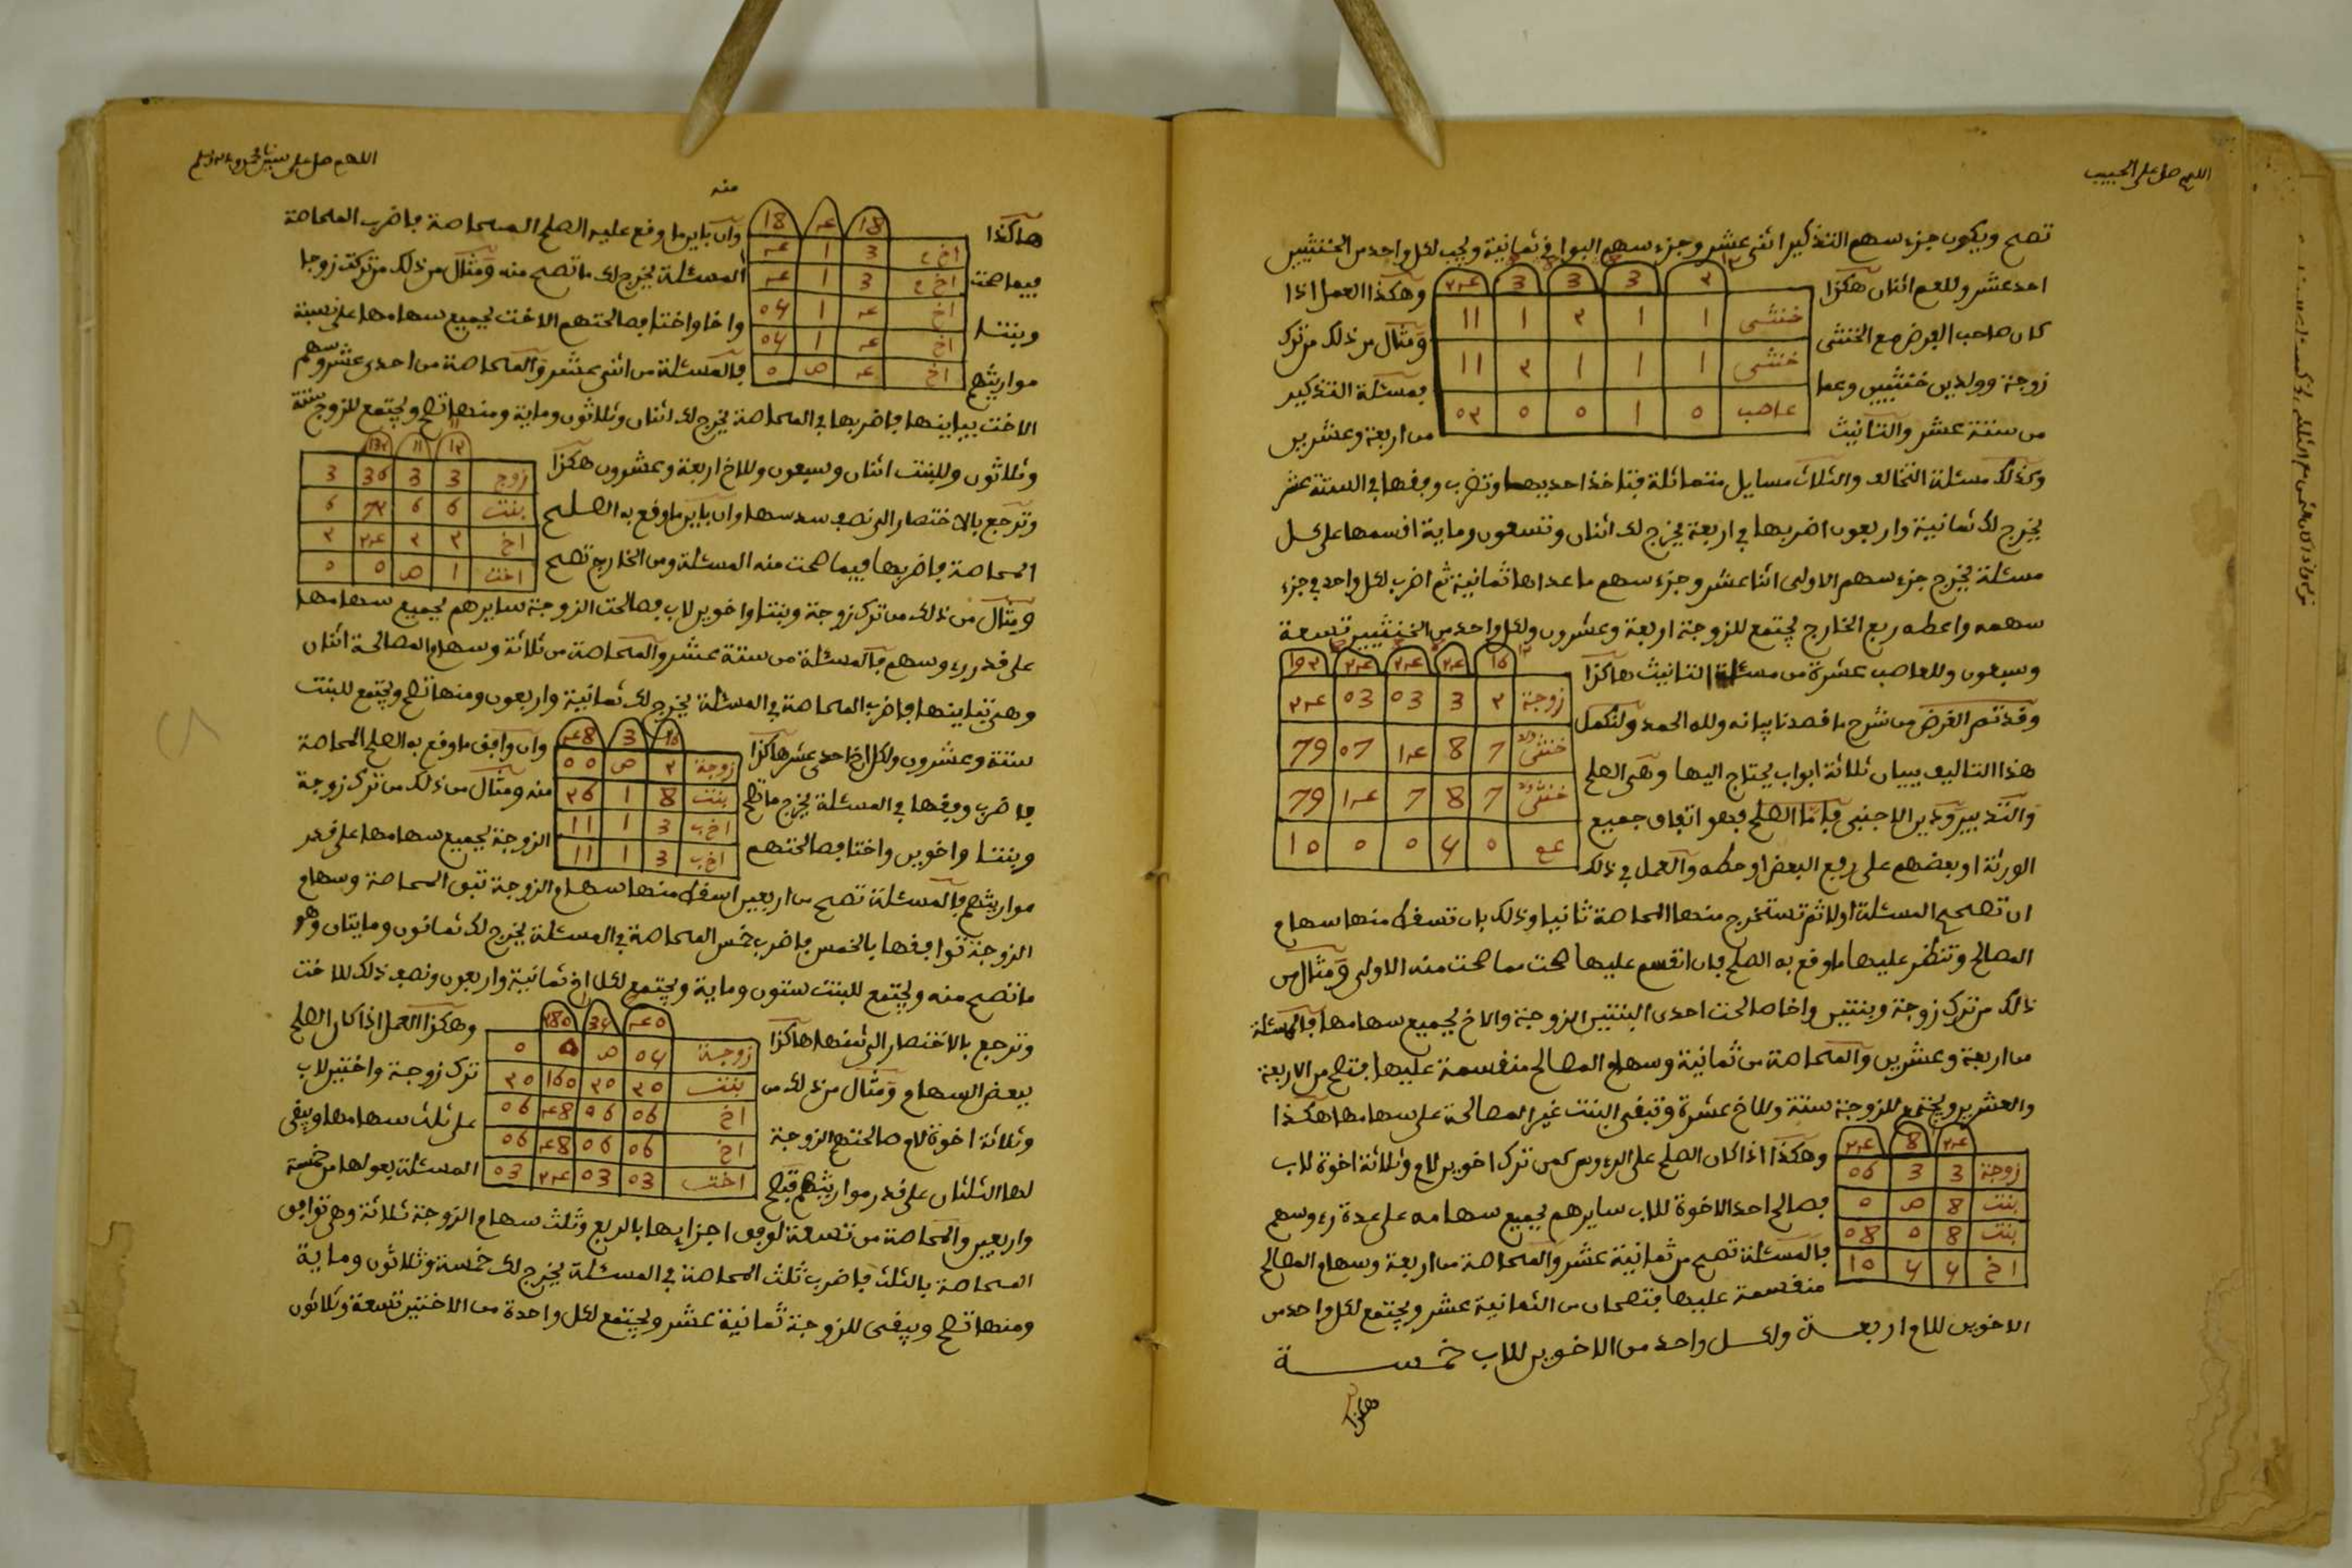 اللهم صل على الحبيب
تصح ويكون جزء سهم التذكير اثنى عشر وجزء سهم البواقي ثمانية ويجب لكل واحد من الخنثيين
احد عشر وللعم اثنان هكذا
وهكذا العمل اذا
كان صاحب الفرض مع الخنثى
ومثال من ذلك من ترك
زوجة وولدين خنثيين وعما
فمسئلة التذكير
من ستة عشر والتانيث
من اربعة وعشرين
خنثى 1 1 2 1 11
خنثى 1 1 1 2 11
عاصب 0 1 0 0 02
وكذلك مسئلة التخالف والثلاث مسايل متماثلة فتاخذ احديهما وتضرب وفقها في الستة عشر
يخرج لك ثمانية واربعون اضربها في اربعة يخرج لك اثنان وتسعون وماية اقسمها على كل
مسئلة يخرج جزء سهم الاولى اثنا عشر وجزء سهم ما عداها ثمانية ثم اضرب لكل واحد في جزء
سهمه واعطه ربع الخارج يجتمع للزوجة اربعة وعشرون ولكل واحد من الخنثيين تسعة
وسبعون وللعاصب عشرة من مسئلة التانيث هاكذا
16 24 24 24 192
زوجة 2 3 03 03 24
خنثى 7 8 14 07 79
خنثى 7 8 7 14 79
عم 0 4 0 0 10
وقد تم الغرض من شرح ما قصدنا بيانه ولله الحمد ولنكمل
هذا التاليف ببيان ثلاثة ابواب يحتاج اليها وهي الصلح
والتدبير ودين الاجنبي فاما الصلح فهو اتفاق جميع
الورثة او بعضهم على رفع البعض او حطه والعمل في ذلك
ان تصحح المسئلة اولا ثم تستخرج منها المحاصة ثانيا وذلك بان تسقط منها سهام
المصالح وتنظر عليها ما وقع به الصلح فان انقسم عليها صحت مما صحت منه الاولى ومثال من
ذلك من ترك زوجة وبنتين واخا صالحت احدى البنتين الزوجة والاخ بجميع سهامها فالمسئلة
من اربعة وعشرين والمحاصة من ثمانية وسهام المصالح منقسمة عليها فتصح من الاربعة
والعشرين ويجتمع للزوجة ستة وللاخ عشرة وتبقى البنت غير المصالحة على سهامها هكذا
24 8 24
زوجة 3 3 06
بنت 8 ص 0
بنت 8 0 08
اخ 4 4 10
وهكذا اذا كان الصلح على الرءوس كمن ترك اخوين لام وثلاثة اخوة لاب
فصالح احد الاخوة للاب سايرهم بجميع سهامه على عدة رءوسهم
فالمسئلة تصح من ثمانية عشر والمحاصة من اربعة وسهام المصالح
منقسمة عليها فتصحان من الثمانية عشر ويجتمع لكل واحد من
الاخوين للام اربعة ولكل واحد من الاخوين للاب خمسة
هكذا
منه
هاكذا
وان باين ما وقع عليه الصلح المحاصة فاضرب المحاصة
فيما صحت
المسئلة يخرج لك ما تصح منه ومثال من ذلك من تركت زوجا
وبنتا
واخا واختا فصالحتهم الاخت بجميع سهامها على نسبة
مواريثهم
فالمسئلة من اثنى عشر والمحاصة من احدى عشر وسهم
الاخت يباينها فاضربها في المحاصة يخرج لك اثنان وثلاثون وماية ومنها تصح ويجتمع للزوج ستة
18 4 18
اخ 3 1 4
اخ 3 1 4
اخ 4 1 05
اخ 4 1 05
اخ 4 ص 0
وثلاثون وللبنت اثنان وسبعون وللاخ اربعة وعشرون هكذا
وترجع بالاختصار الى نصف سدسها وان باين ما وقع به الصلح
المحاصة فاضربها فيما صحت منه المسئلة ومن الخارج تصح
12 11 132
زوج 3 3 36 3
بنت 6 6 72 6
اخ 2 2 24 2
اخت 1 ص 0 0
ومثال من ذلك من ترك زوجة وبنتا واخوين لاب فصالحت الزوجة سايرهم بجميع سهامها
على قدر رءوسهم فالمسئلة من ستة عشر والمحاصة من ثلاثة وسهام المصالحة اثنان
وهي تباينها فاضرب المحاصة في المسئلة يخرج لك ثمانية واربعون ومنها تصح ويجتمع للبنت
ستة وعشرون ولكل اخ احدى عشر هاكذا
وان وافق ما وقع به الصلح المحاصة
فاضرب وفقها في المسئلة يخرج ما تصح
منه ومثال من ذلك من ترك زوجة
وبنتا واخوين واختا فصالحتهم
الزوجة بجميع سهامها على قدر
16 3 48
زوجة 2 ص 00
بنت 8 1 26
اخ ب 3 1 11
اخ ب 3 1 11
مواريثهم فالمسئلة تصح من اربعين اسقط منها سهام الزوجة تبق المحاصة وسهام
الزوجة توافقها بالخمس فاضرب خمس المحاصة في المسئلة يخرج لك ثمانون ومايتان وهو
ما تصح منه ويجتمع للبنت ستون وماية ويجتمع لكل اخ ثمانية واربعون ونصف ذلك للاخت
وترجع بالاختصار الى ثمنها هاكذا
وهكذا العمل اذا كان الصلح
ببعض السهام ومثال من ذلك من
ترك زوجة واختين لاب
وثلاثة اخوة لام وصالحتهم الزوجة
على ثلث سهامها ويبقى
لها الثلثان على قدر مواريثهم فتصح
المسئلة بعولها من خمسة
زوجة 05 ص 0 0
بنت 20 20 160 20
اخ 06 06 48 06
اخ 06 06 48 06
اخت 03 03 24 03
واربعين والمحاصة من تسعة لوفق اجزايها بالربع وثلث سهام الزوجة ثلاثة وهي توافق
المحاصة بالثلث فاضرب ثلث المحاصة في المسئلة يخرج لك خمسة وثلاثون وماية
ومنها تصح ويبقى للزوجة ثمانية عشر ويجتمع لكل واحدة من الاختين تسعة وثلاثون